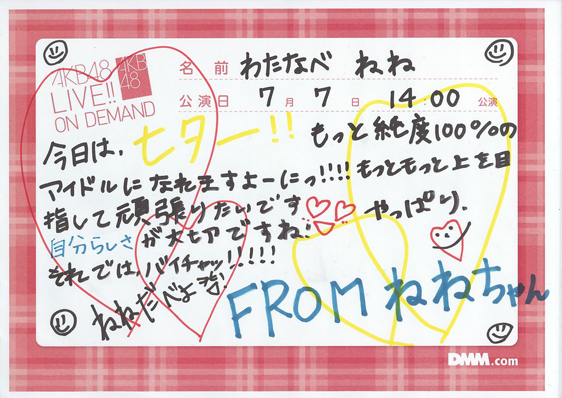 AKB48
LIVE!!
ON DEMAND
AKB
48
名前 わたなべ ねね
公演日 7月7日 14:00 公演
今日は、七夕ー!! もっと純度100%の
アイドルになれますよーにっ!!!! もっともっと上を目
指して頑張りたいです やっぱり、
自分らしさが大切ですね
それでは、バイチャッ!!!!!
ねねだべよ
FROM ねねちゃん
DMM.com